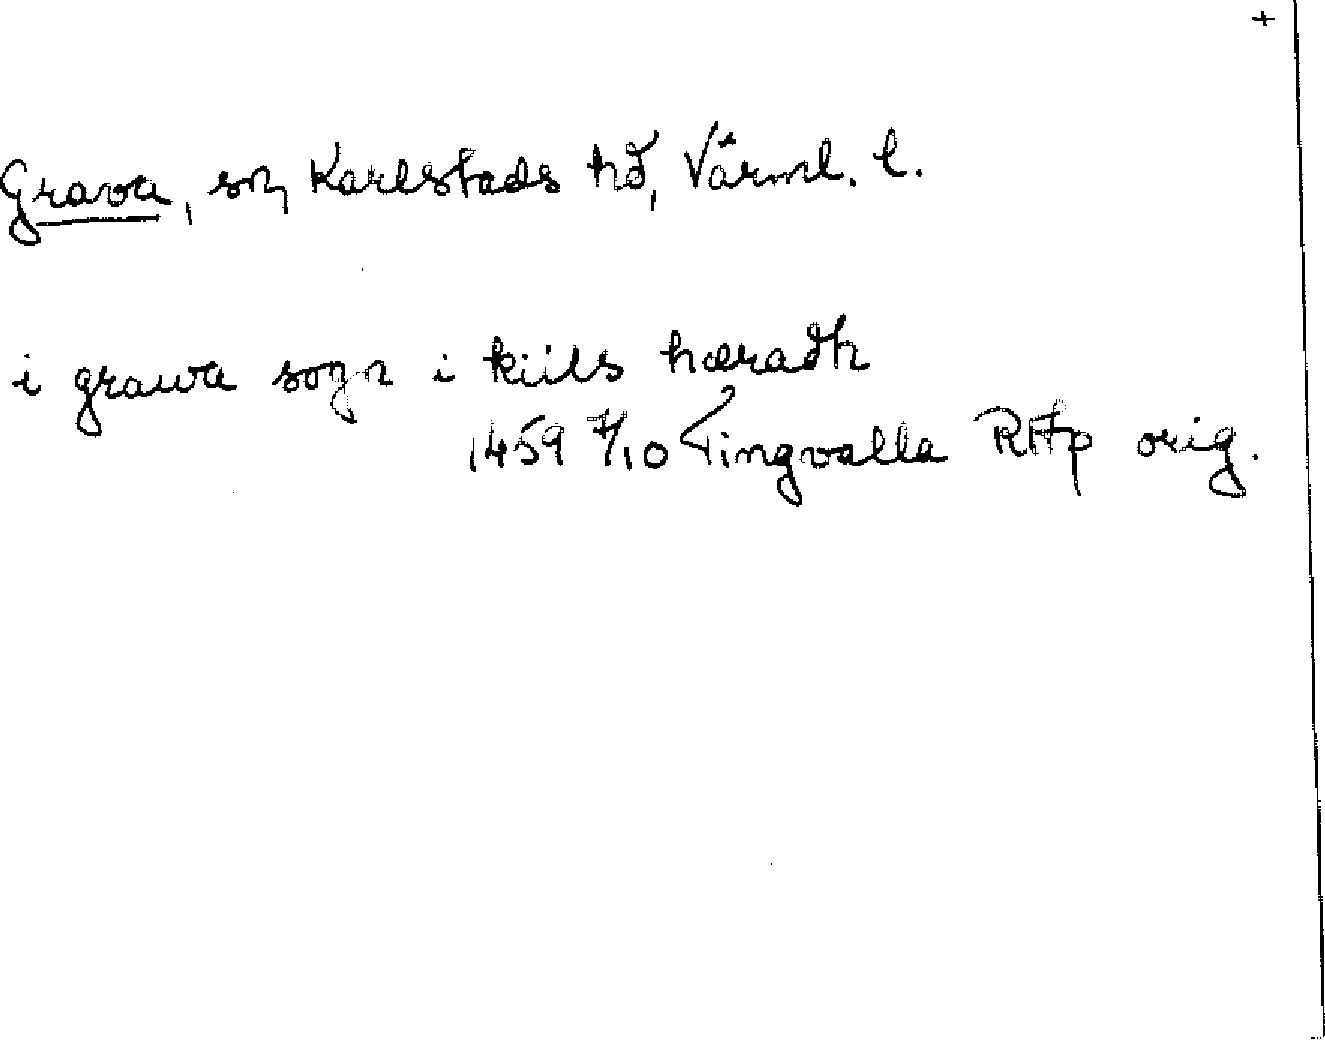 +
Grava, sn, Karlstads hd, Värml. l.
i grawa sogn i kiils hæradh
1459 7/10 Tingvalla RAp orig.